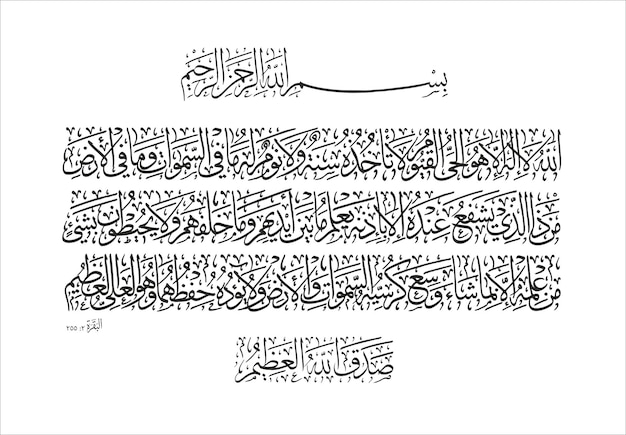 بِسْمِ اللَّهِ الرَّحْمَنِ الرَّحِيمِ
اللَّهُ لَا إِلَهَ إِلَّا هُوَ الْحَيُّ الْقَيُّومُ لَا تَأْخُذُهُ سِنَةٌ وَلَا نَوْمٌ لَهُ مَا فِي السَّمَوَاتِ وَمَا فِي الْأَرْضِ
مَنْ ذَا الَّذِي يَشْفَعُ عِنْدَهُ إِلَّا بِإِذْنِهِ يَعْلَمُ مَا بَيْنَ أَيْدِيهِمْ وَمَا خَلْفَهُمْ وَلَا يُحِيطُونَ بِشَيْءٍ
مِنْ عِلْمِهِ إِلَّا بِمَا شَاءَ وَسِعَ كُرْسِيُّهُ السَّمَوَاتِ وَالْأَرْضَ وَلَا يَئُودُهُ حِفْظُهُمَا وَهُوَ الْعَلِيُّ الْعَظِيمُ
البَقَرَة ٢: ٢٥٥
صَدَقَ اللَّهُ الْعَظِيمُ